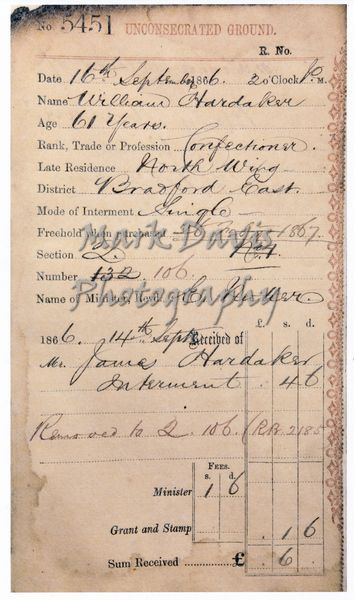 No 5451 UNCONSECRATED GROUND.
R. No.
Date 16th September 1866. 2 o'Clock P. M.
Name William Hardaker
Age 61 Years.
Rank, Trade or Profession Confectioner.
Late Residence North Wing
District Bradford East.
Mode of Interment Single
Freehold 1867.
Section 2.
Number 132 106.
Name of Minister, Revd.
Mark Davis
Photography
£. s. d.
1866. 14th Sept. Received of
Mr. James Hardaker
Interment . 4 6
Removed to 2. 106. (RB 2185
FEES.
s. d.
Minister 1 6
Grant and Stamp . 1 6
Sum Received £ . 6 .